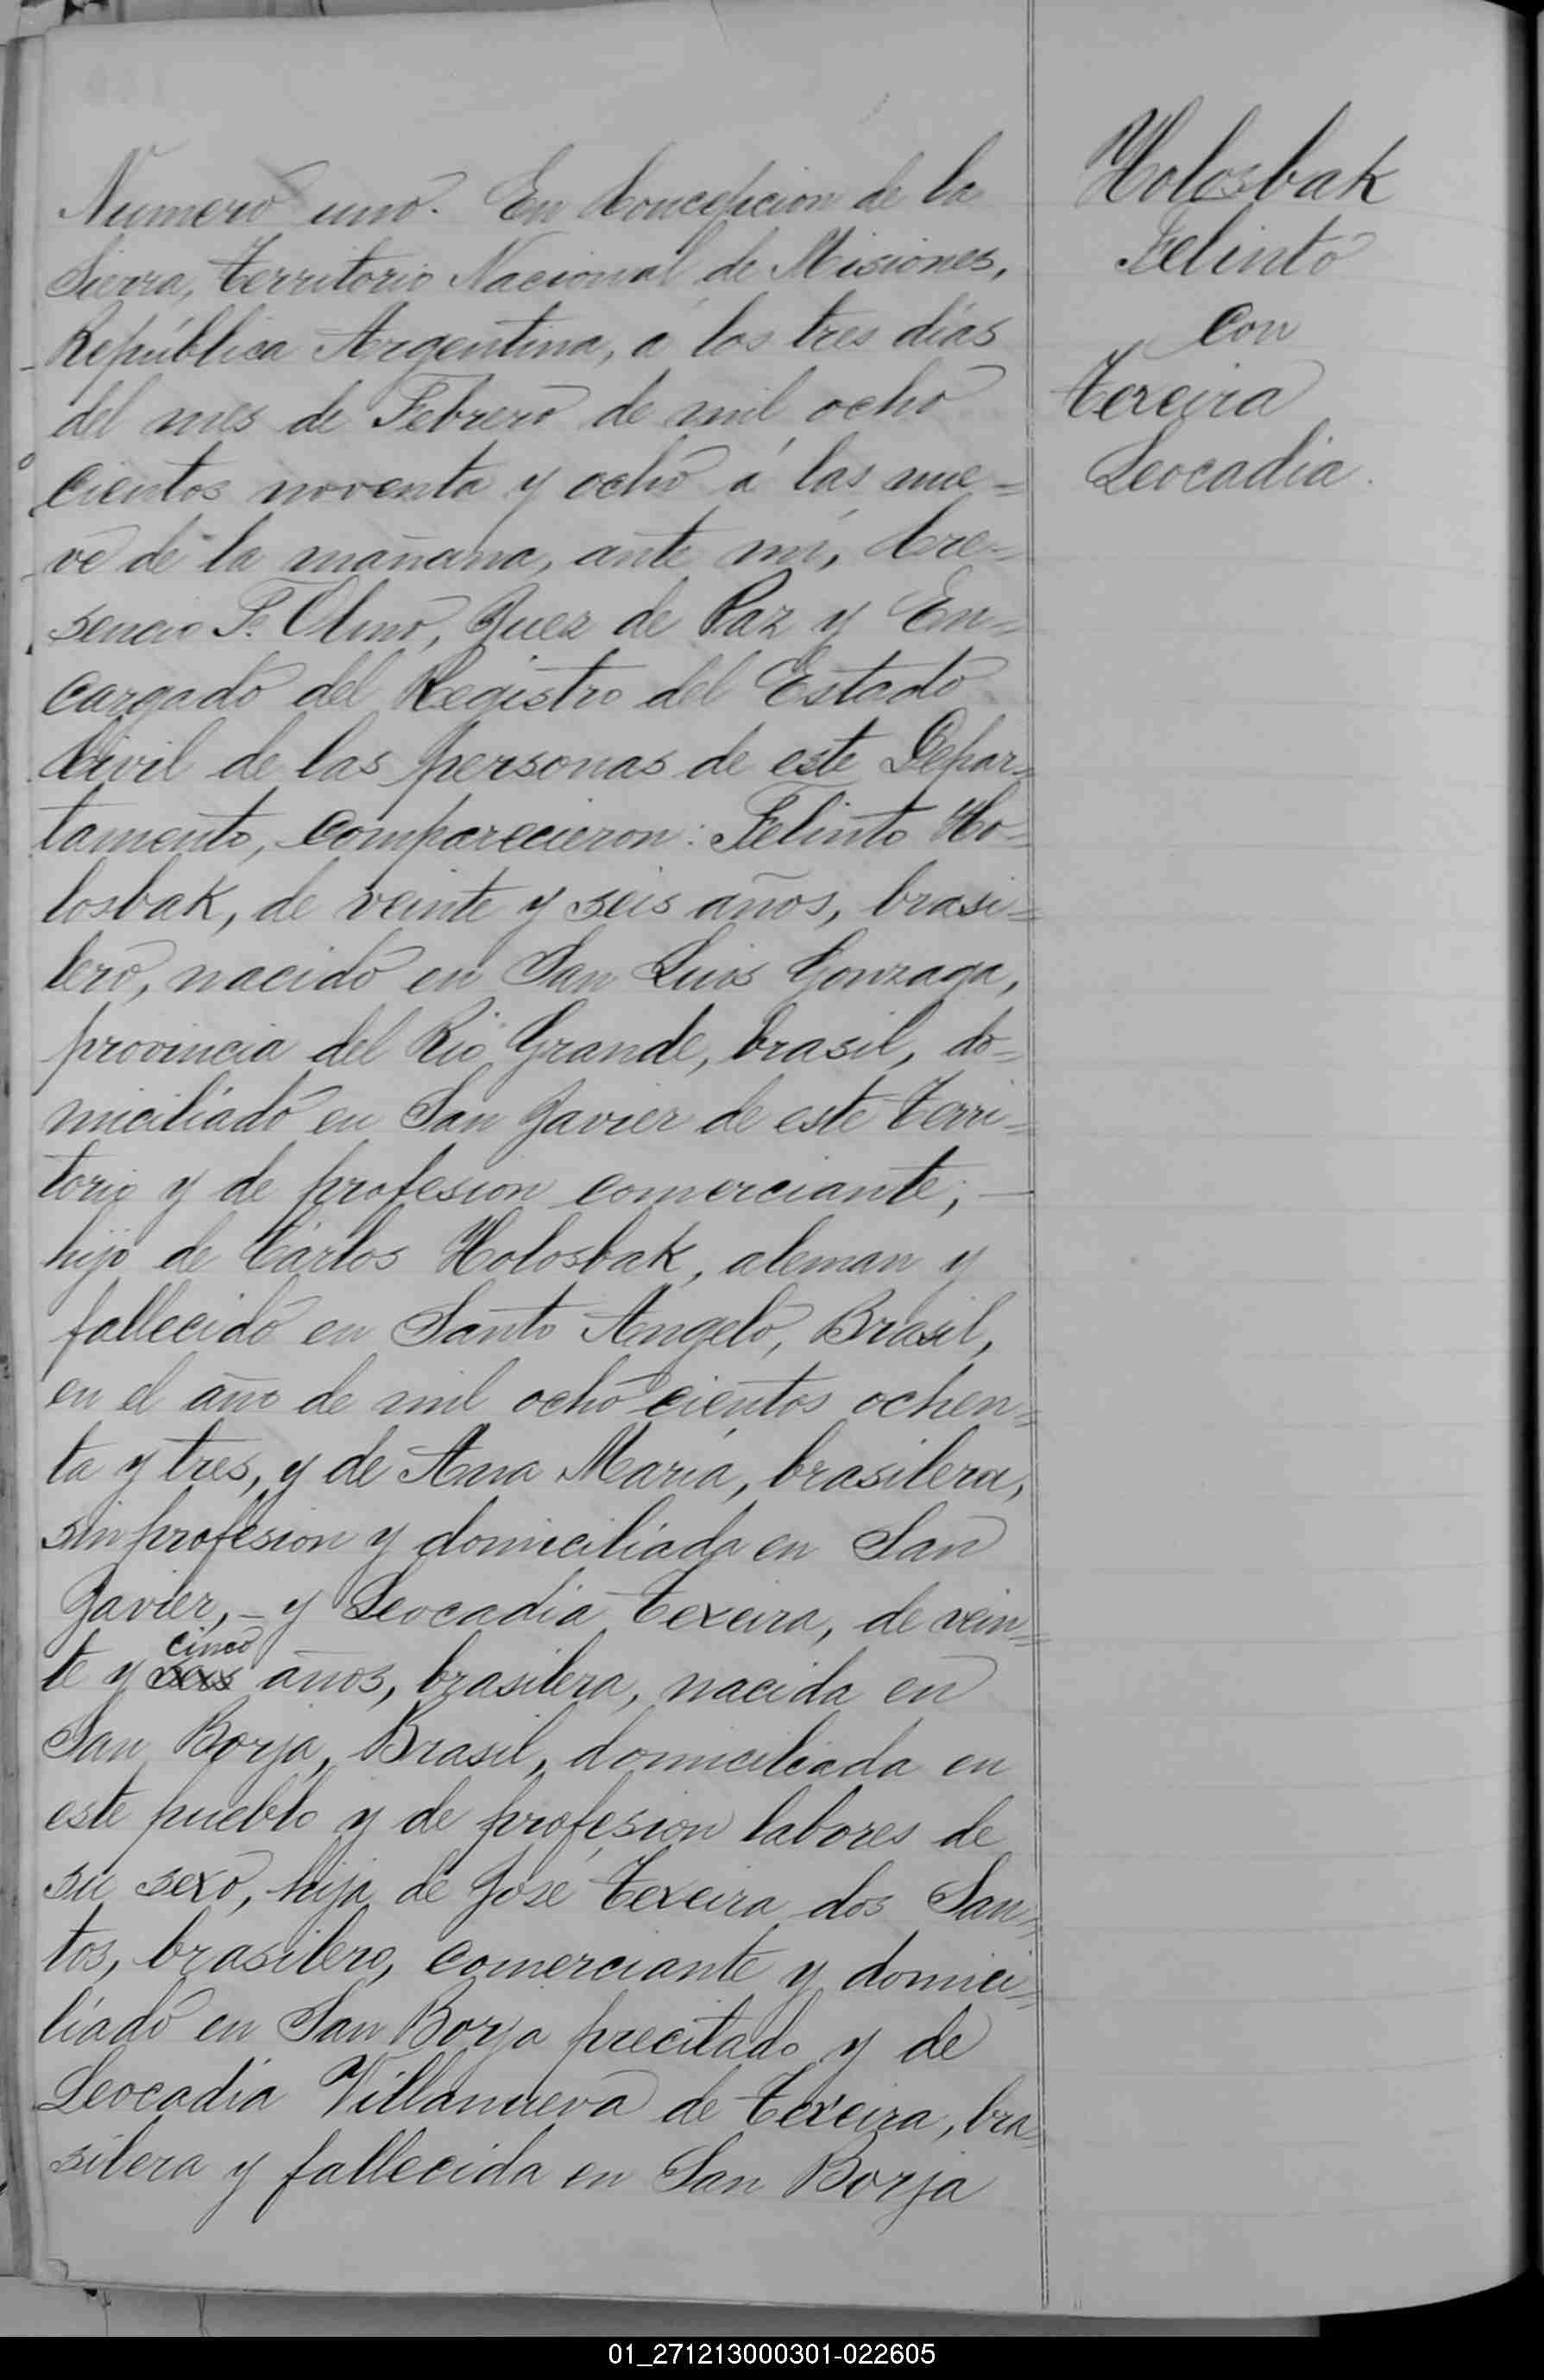 Numero uno. En Concepcion de la
Sierra, Territorio Nacional de Misiones,
República Argentina, á los tres dias
del mes de Febrero de mil ocho
cientos noventa y ocho á las nue=
ve de la mañana, ante mí, Cre=
sencio F. Olmo, Juez de Paz y En=
cargado del Registro del Estado
Civil de las personas de este Depar=
tamento, comparecieron: Felinto Ho=
losbak, de veinte y seis años, brasi=
lero, nacido en San Luis Gonzaga,
provincia del Rio Grande, brasil, do=
miciliado en San Javier de este Terri=
torio y de profesion comerciante; —
hijo de Cárlos Holosbak, aleman y
fallecido en Santo Angelo, Brasil,
en el año de mil ocho cientos ochen=
ta y tres, y de Ana María, brasilera,
sin profesion y domiciliada en San
Javier, – y Leocadia Texeira, de vein=
cinco
te y seis años, brasilera, nacida en
San Borja, Brasil, domiciliada en
este pueblo y de profesion labores de
su sexo, hija de José Texeira dos San=
tos, brasilero, comerciante y domici=
liado en San Borja precitado y de
Leocadia Villanueva de Texeira, bra=
silera y fallecida en San Borja
Holosbak
Felinto
con
Texeira
Leocadia.
01_271213000301-022605